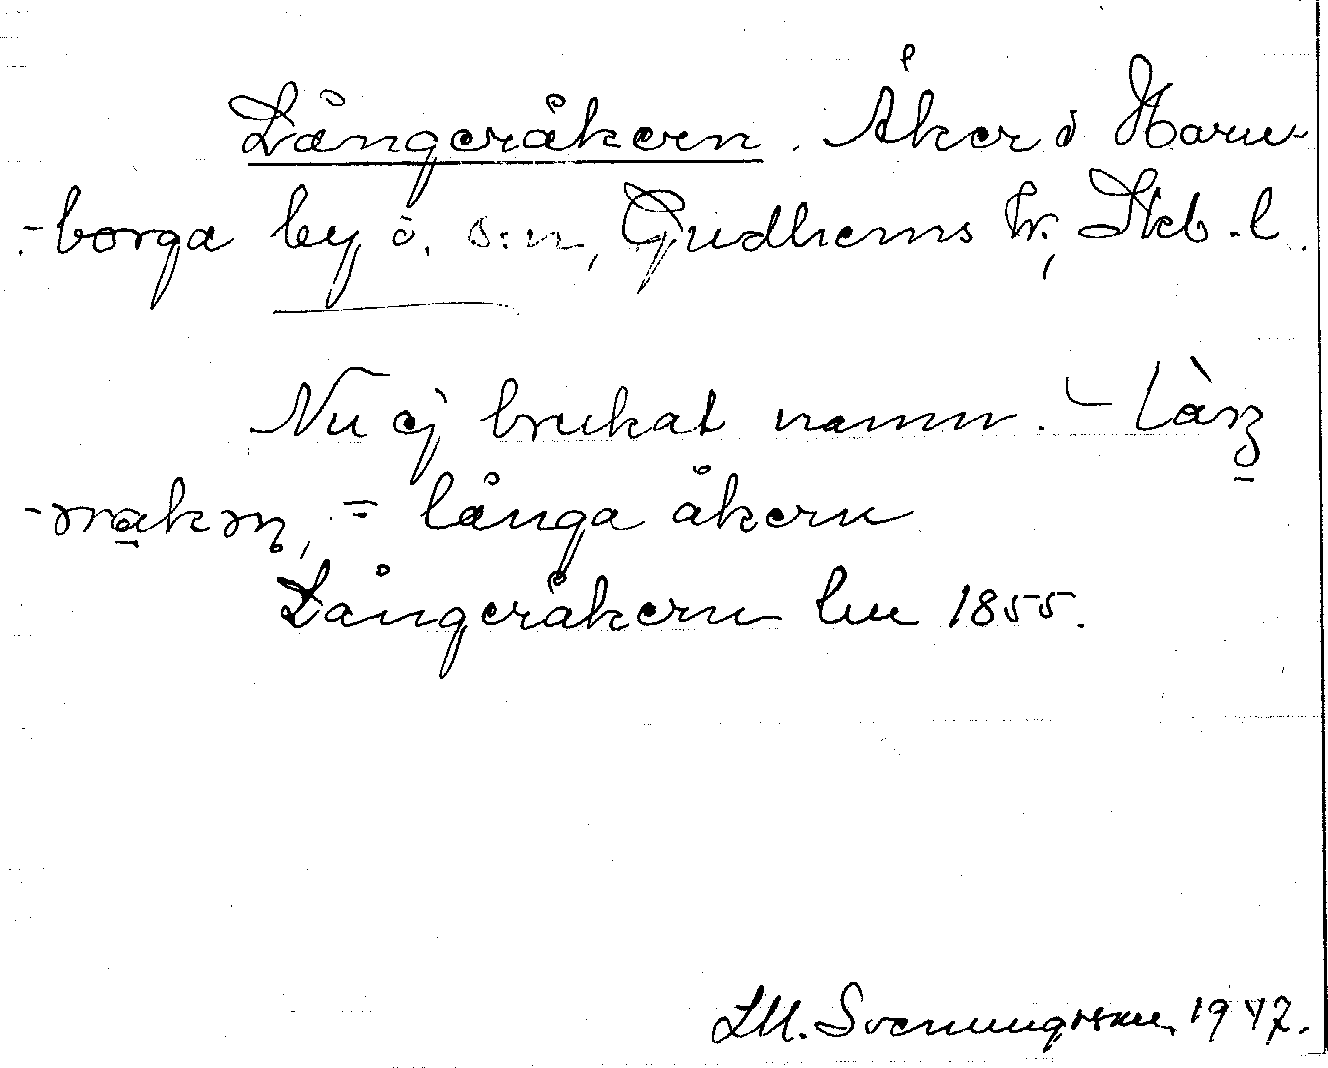 Långeråkern. Åker i Horn-
-borga by o. s:n, Gudhems hr, Skb. l.
Nu ej brukat namn. – làŋ
-ərakən, = långa åkern
Långeråkern lm 1855.
LM. Svenungsson 1947.